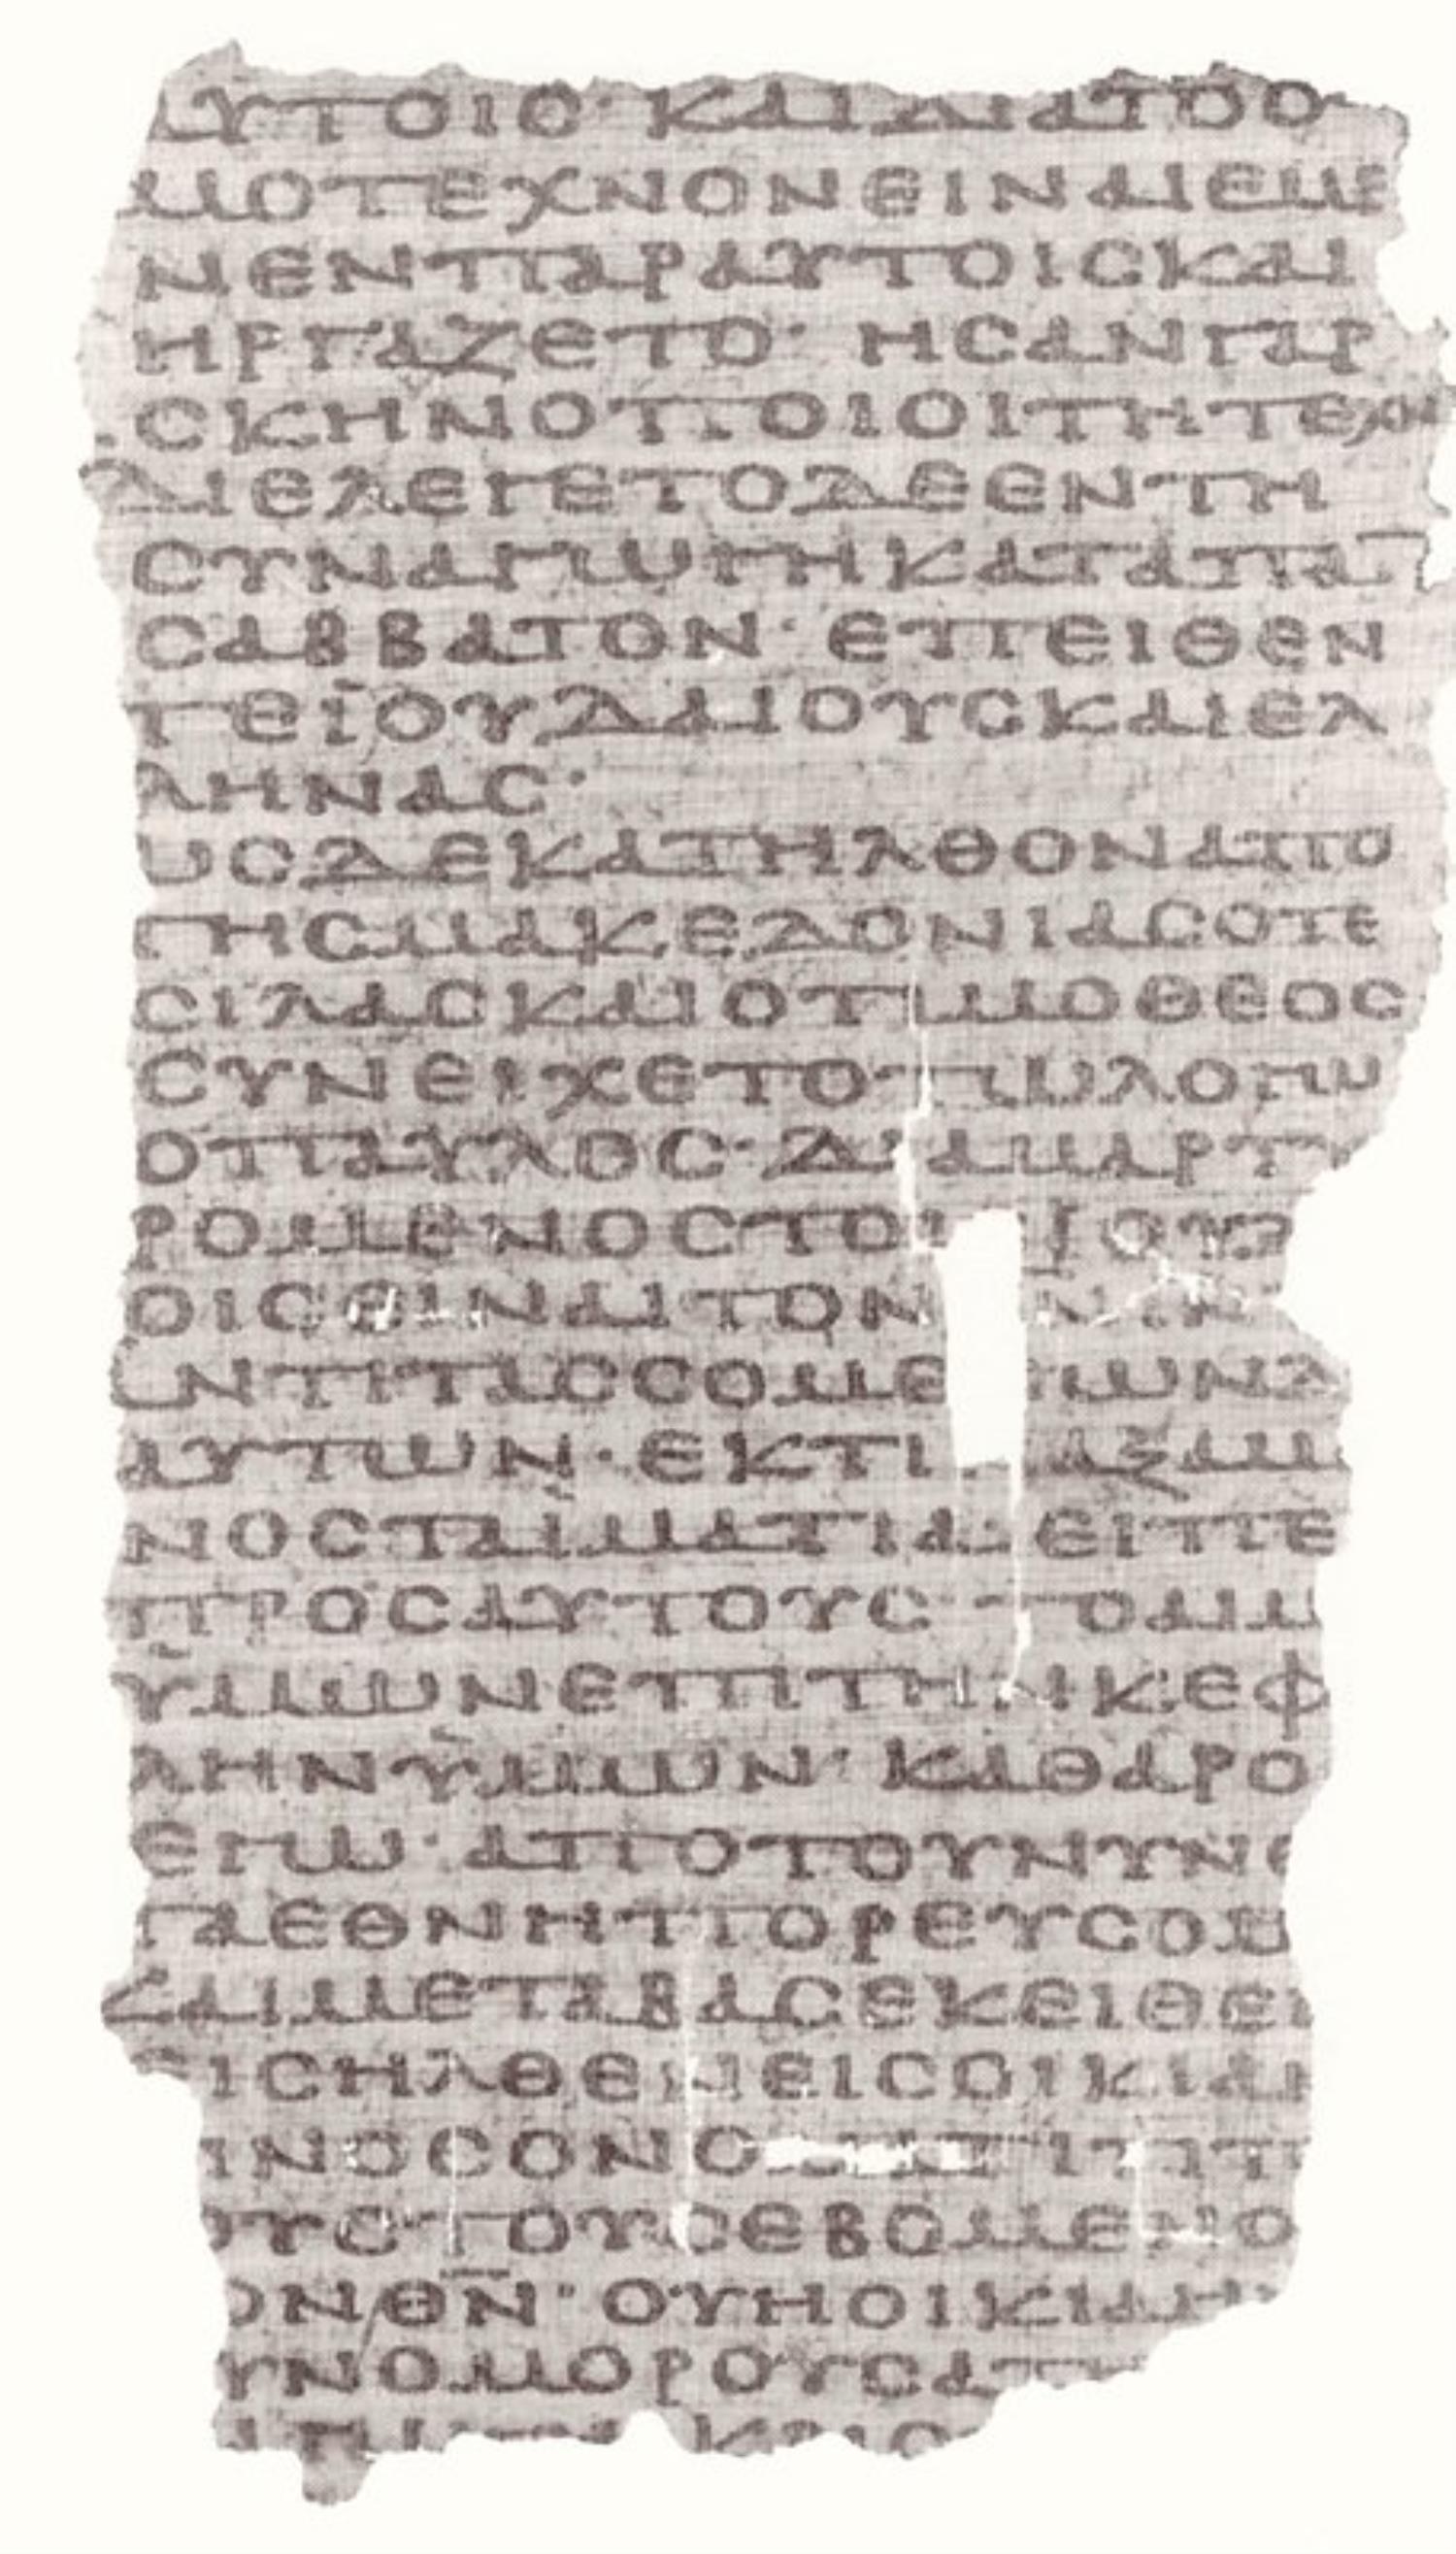 ΑΥΤΟΙΣ· ΚΑΙΔΙΑΤΟΟ
ΜΟΤΕΧΝΟΝΕΙΝΑΙΕΜΕ
ΝΕΝΠΑΡΑΥΤΟΙϹΚΑΙ
ΗΡΓΑΖΕΤΟ· ΗϹΑΝΓΑΡ
ϹΚΗΝΟΠΟΙΟΙΤΗΤΕΧΝΗ
ΔΙΕΛΕΓΕΤΟΔΕΕΝΤΗ
ϹΥΝΑΓΩΓΗΚΑΤΑΠΑ
ϹΑΒΒΑΤΟΝ· ΕΠΕΙΘΕΝ
ΤΕΪΟΥΔΑΙΟΥϹΚΑΙΕΛ
ΛΗΝΑϹ·
ΩϹΔΕΚΑΤΗΛΘΟΝΑΠΟ
ΤΗϹΜΑΚΕΔΟΝΙΑϹΟΤΕ
ϹΙΛΑϹΚΑΙΟΤΙΜΟΘΕΟϹ
ϹΥΝΕΙΧΕΤΟΤΩΛΟΓΩ
ΟΠΑΥΛΟϹ· ΔΙΑΜΑΡΤΥ
ΡΟΜΕΝΟϹΤΟΙ ΪΟΥΔ
ΟΙϹΕΙΝΑΙΤΟΝ
ΑΝΤΙΤΑϹϹΟΜΕ ΩΝΔ
ΑΥΤΩΝ· ΕΚΤΙ ΑΞΑΜ
ΝΟϹΤΑΪΜΑΤΙΑ ΕΙΠΕ
ΠΡΟϹΑΥΤΟΥϹ ΤΟΑΙΜ
ΥΜΩΝΕΠΙΤΗΝΚΕΦ
ΛΗΝΥΜΩΝ· ΚΑΘΑΡΟ
ΕΓΩ· ΑΠΟΤΟΥΝΥΝΕ
ΤΑΕΘΝΗΠΟΡΕΥϹΟΜ
ΚΑΙΜΕΤΑΒΑϹΕΚΕΙΘΕ
ΙϹΗΛΘΕΝΕΙϹΟΙΚΙΑΝ
ΙΝΟϹΟΝΟ ΙΤΙΤ
ΟΥϹΤΟΥϹΕΒΟΜΕΝΟ
ΟΝΘΝ̅· ΟΥΗΟΙΚΙΑΗ
ΥΝΟΜΟΡΟΥϹΑ